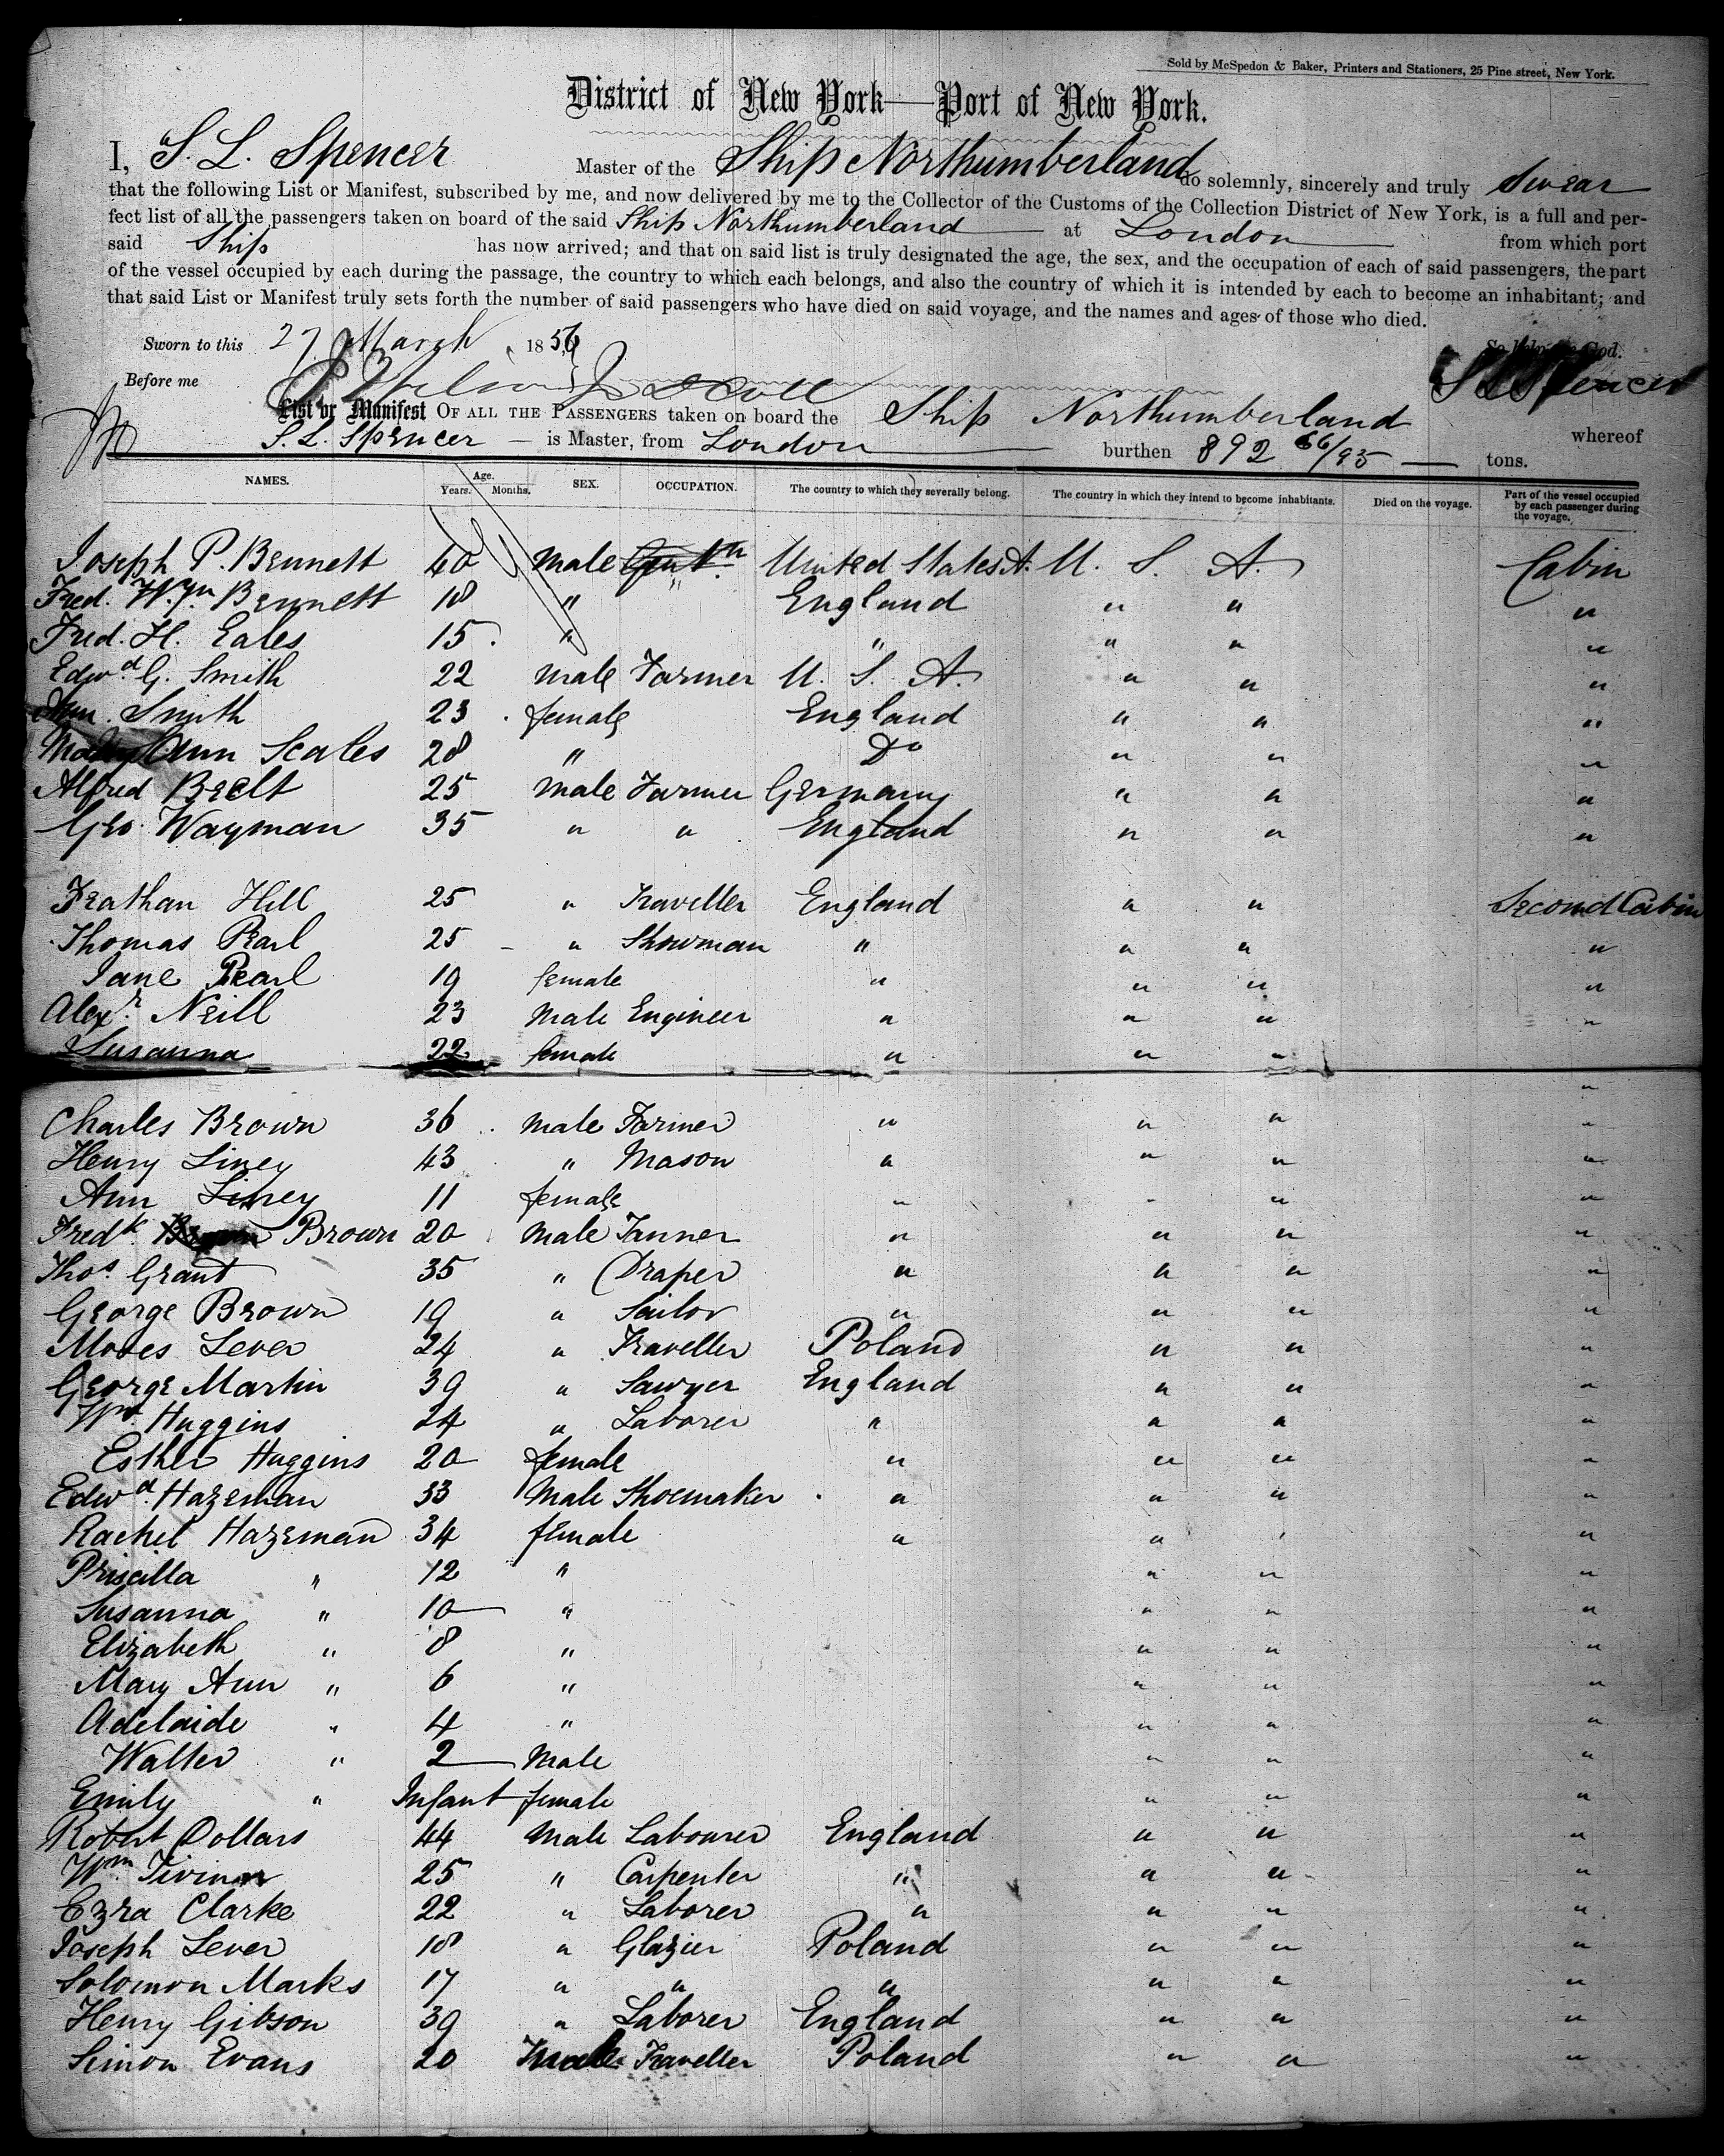 Sold by McSpedon & Baker, Printers and Stationers, 25 Pine street, New York.
District of New York—Port of New York.
I, S. L. Spencer Master of the Ship Northumberland do solemnly, sincerely and truly Swear
that the following List or Manifest, subscribed by me, and now delivered by me to the Collector of the Customs of the Collection District of New York, is a full and per-
fect list of all the passengers taken on board of the said Ship Northumberland at London from which port
said Ship has now arrived; and that on said list is truly designated the age, the sex, and the occupation of each of said passengers, the part
of the vessel occupied by each during the passage, the country to which each belongs, and also the country of which it is intended by each to become an inhabitant; and
that said List or Manifest truly sets forth the number of said passengers who have died on said voyage, and the names and ages of those who died.
Sworn to this 27 March 1856 So help me God.
Before me S L Spencer
List or Manifest OF ALL THE PASSENGERS taken on board the Ship Northumberland whereof
S. L. Spencer — is Master, from London burthen 892 66/95 — tons.
NAMES. Age. Years. Months. SEX. OCCUPATION. The country to which they severally belong. The country in which they intend to become inhabitants. Died on the voyage. Part of the vessel occupied by each passenger during the voyage.
Joseph P. Bennett 40 Male United States A. U. S. A. Cabin
Fred. Wm Bennett 18 " England " " "
Fred. H. Eales 15 " " " " "
Edwd. G. Smith 22 Male Farmer U. S. A. " " "
Smith 23 female England " " "
Mary Ann Scales 28 " Do " " "
Alfred Beelt 25 Male Farmer Germany " " "
Geo. Wayman 35 " " England " " "
Frathan Hill 25 " Traveller England " " Second Cabin
Thomas Pearl 25 " Showman " " " "
Jane Pearl 19 female " " " "
Alexr. Neill 23 Male Engineer " " " "
Susanna 22 female " " " "
Charles Brown 36 Male Farmer " " " "
Henry Liney 43 " Mason " " " "
Ann Liney 11 female " " " "
Fredk. Brown 20 Male Tanner " " " "
Thos. Grant 35 " Draper " " " "
George Brown 19 " Sailor " " " "
Moses Lever 24 " Traveller Poland " " "
George Martin 39 " Sawyer England " " "
Wm. Huggins 24 " Laborer " " " "
Esther Huggins 20 female " " " "
Edwd. Hazeman 33 Male Shoemaker " " " "
Rachel Hazeman 34 female " " " "
Priscilla " 12 " " " "
Susanna " 10 " " " "
Elizabeth " 8 " " " "
Mary Ann " 6 " " " "
Adelaide " 4 " " " "
Walter " 2 Male " " "
Emily " Infant female " " "
Robert Dollars 44 Male Labourer England " " "
Wm. 25 " Carpenter " " " "
Ezra Clarke 22 " Laborer " " " "
Joseph Lever 18 " Glazier Poland " " "
Solomon Marks 17 " " " " " "
Henry Gibson 39 " Laborer England " " "
Simon Evans 20 Male Traveller Poland " " "